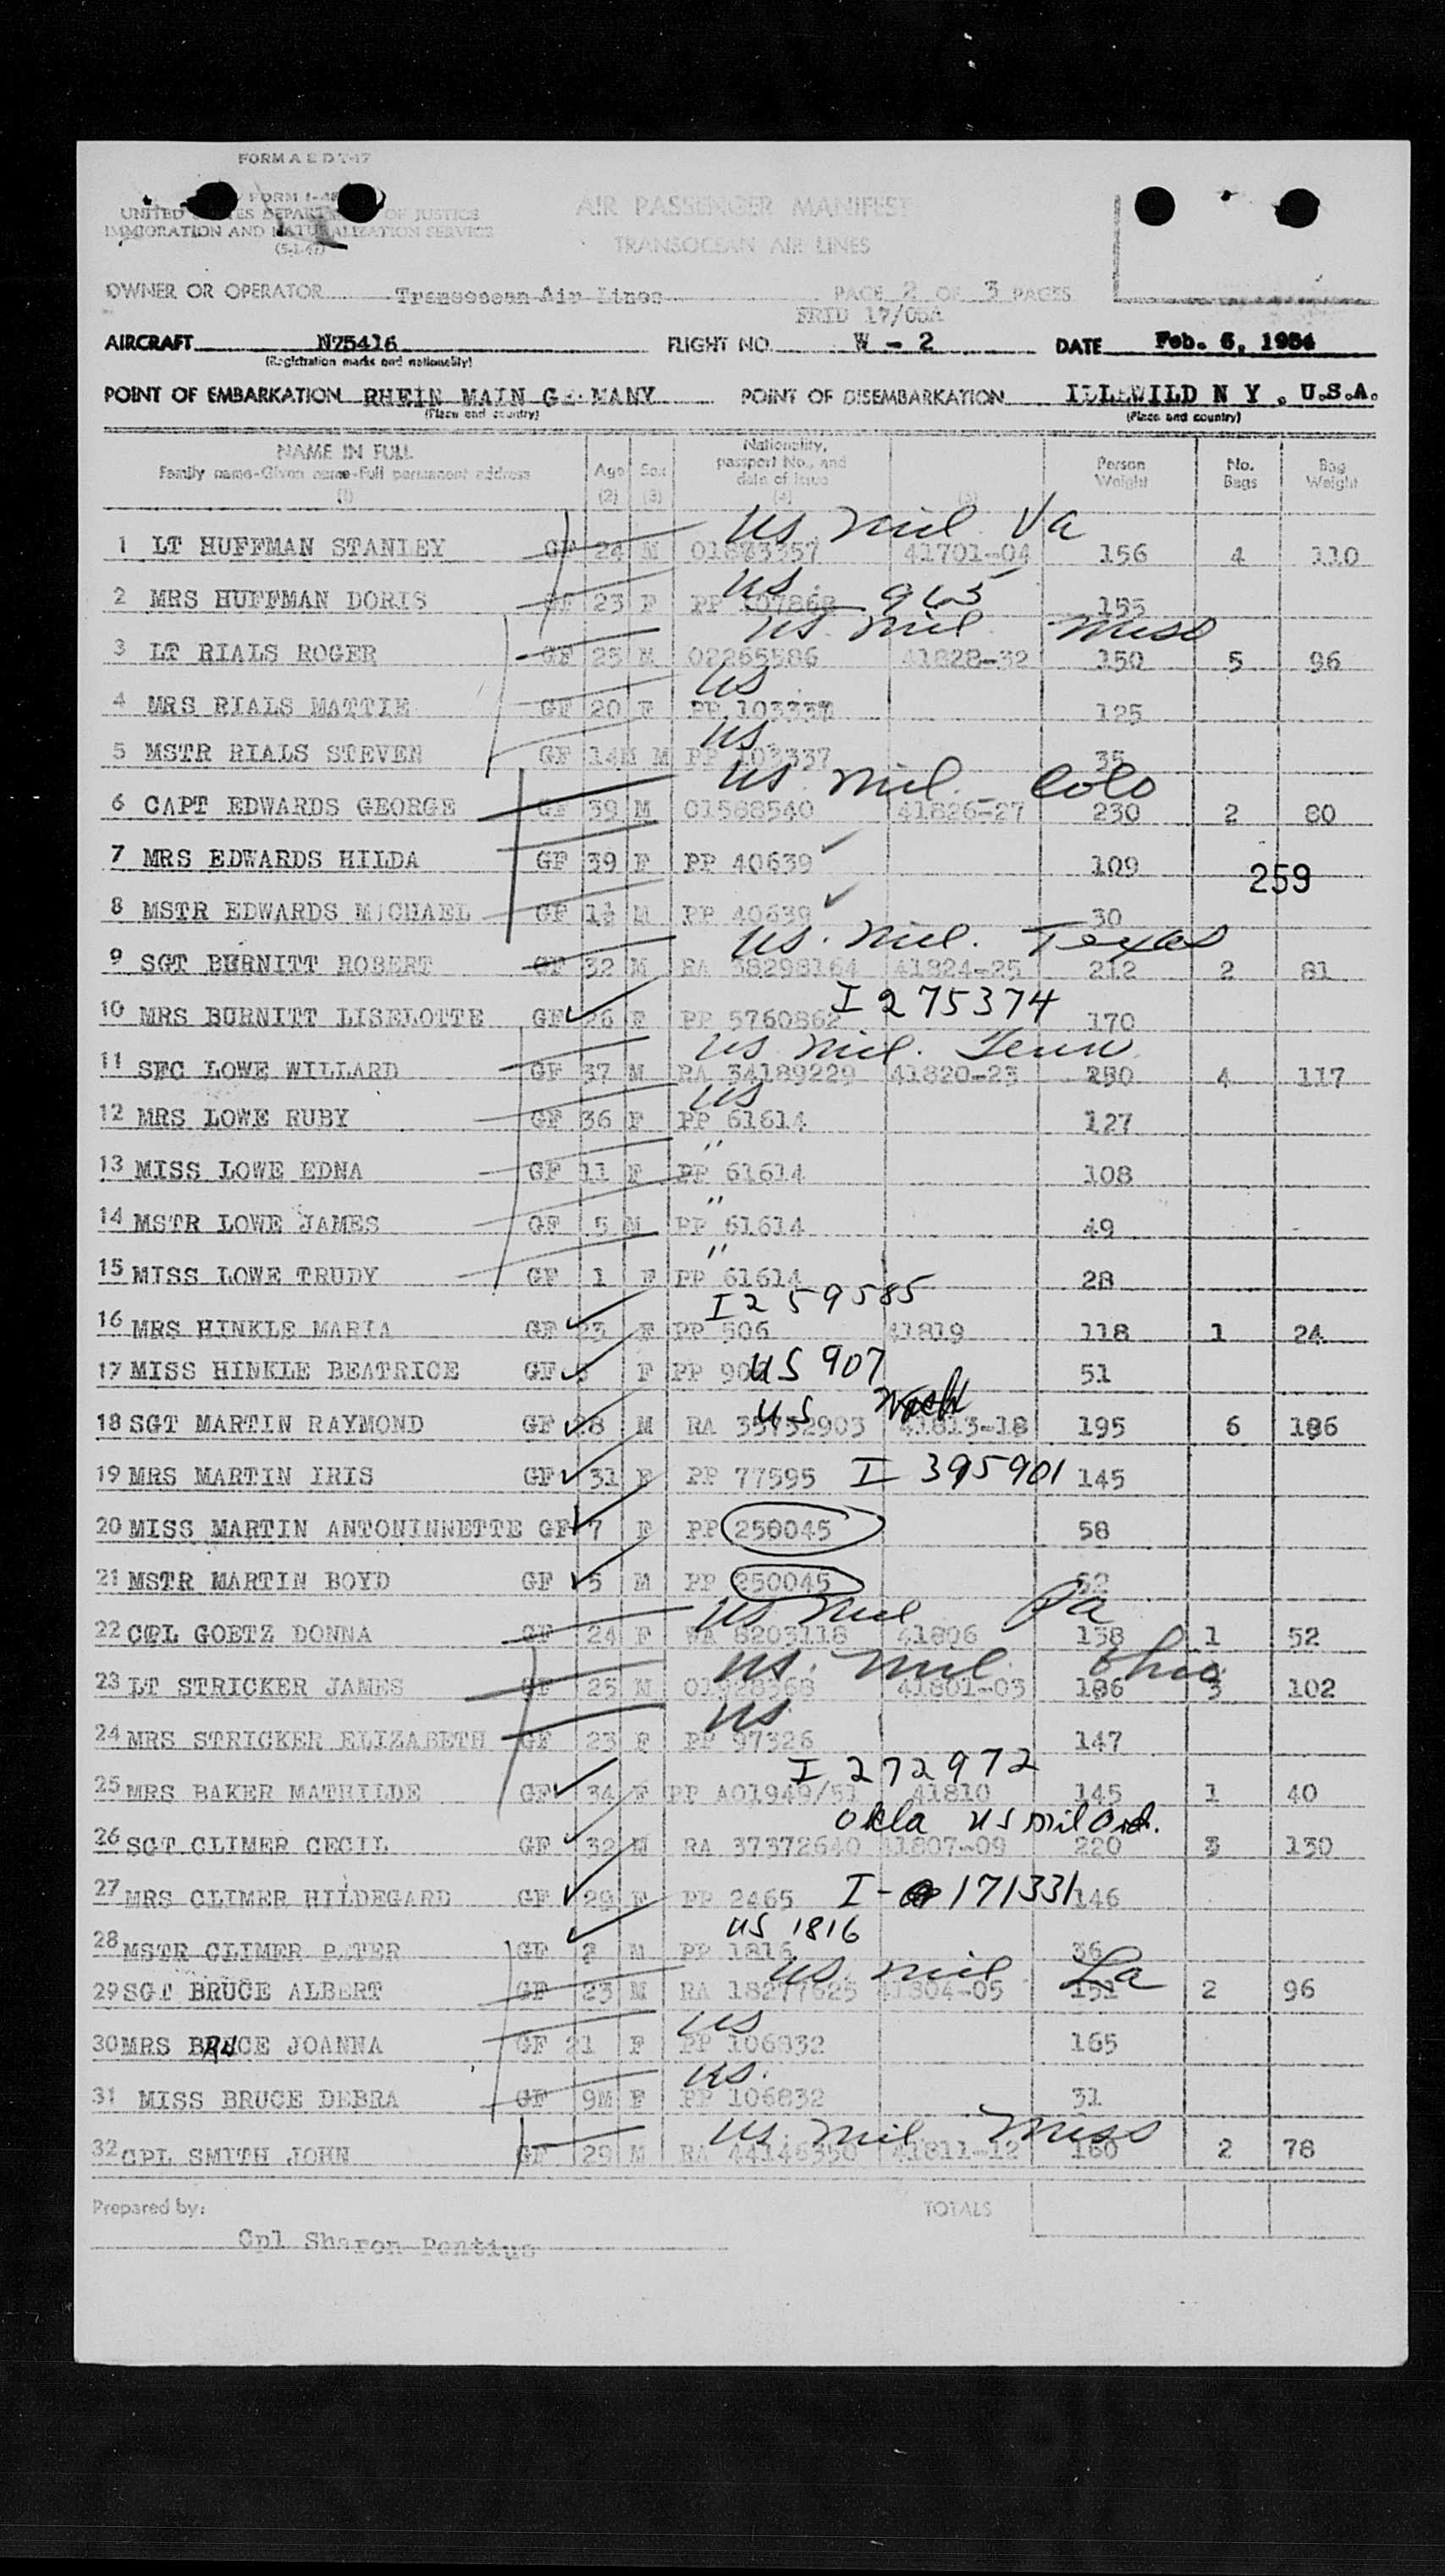 FORM A E D 1-17
FORM I-48
UNITED STATES DEPARTMENT OF JUSTICE
IMMIGRATION AND NATURALIZATION SERVICE
(5-1-47)
AIR PASSENGER MANIFEST
TRANSOCEAN AIR LINES
OWNER OR OPERATOR Transocean Air Lines PAGE 2 OF 3 PAGES
FRID 17/08A
AIRCRAFT N75416 FLIGHT NO. W - 2 DATE Feb. 5, 1954
(Registration marks and nationality)
POINT OF EMBARKATION RHEIN MAIN GERMANY POINT OF DISEMBARKATION IDLEWILD N Y . U.S.A.
(Place and country) (Place and country)
NAME IN FULL Age Sex Nationality, passport No., and date of issue Person Weight No. Bags Bag Weight
Family name-Given name-Full permanent address
(1) (2) (3) (4) (5)
US Mil Va
1 LT HUFFMAN STANLEY GF 24 M 01873357 41701-04 156 4 110
US 965
2 MRS HUFFMAN DORIS GF 23 F PP 107868 155
US Mil Miss
3 LT RIALS ROGER GF 25 M 02265586 41828-32 150 5 96
US
4 MRS RIALS MATTIE GF 20 F PP 103337 125
US
5 MSTR RIALS STEVEN GF 14M M PP 103337 35
US Mil. - Colo
6 CAPT EDWARDS GEORGE GF 39 M 01588540 41826-27 230 2 80
7 MRS EDWARDS HILDA GF 39 F PP 40639 109
259
8 MSTR EDWARDS MICHAEL GF 1½ M PP 40639 30
US. Mil. Texas
9 SGT BURNITT ROBERT GF 32 M RA 38298164 41824-25 212 2 81
I 275374
10 MRS BURNITT LISELOTTE GF 26 F PP 5760862 170
US Mil. Tenn
11 SFC LOWE WILLARD GF 37 M RA 34189229 41820-23 250 4 117
US
12 MRS LOWE RUBY GF 36 F PP 61614 127
"
13 MISS LOWE EDNA GF 11 F PP 61614 108
"
14 MSTR LOWE JAMES GF 5 M PP 61614 49
"
15 MISS LOWE TRUDY GF 1 F PP 61614 28
I259585
16 MRS HINKLE MARIA GF 23 F PP 506 41819 118 1 24
17 MISS HINKLE BEATRICE GF F PP 90 US 907 51
US
18 SGT MARTIN RAYMOND GF 28 M RA 35752903 41813-18 195 6 186
19 MRS MARTIN IRIS GF 31 F PP 77595 I 395901 145
20 MISS MARTIN ANTONINNETTE GF 7 F PP 250045 58
21 MSTR MARTIN BOYD GF 5 M PP 250045 52
US Mil Pa
22 CPL GOETZ DONNA GF 24 F WA 8203118 41806 138 1 52
US. Mil. Ohio
23 LT STRICKER JAMES GF 25 M 01328368 41801-03 186 3 102
US
24 MRS STRICKER ELIZABETH GF 23 F PP 97326 147
I 272972
25 MRS BAKER MATHILDE GF 34 F PP A01949/51 41810 145 1 40
Okla US Mil Ord.
26 SGT CLIMER CECIL GF 32 M RA 37372640 41807-09 220 3 130
27 MRS CLIMER HILDEGARD GF 29 F PP 2465 I-171331 146
US 1816
28 MSTR CLIMER PETER GF 2 M PP 1816 36
US. Mil La
29 SGT BRUCE ALBERT GF 23 M RA 18277625 41804-05 151 2 96
US
30 MRS BRUCE JOANNA GF 21 F PP 106832 165
US.
31 MISS BRUCE DEBRA GF 9M F PP 106832 31
US. Mil Miss
32 CPL SMITH JOHN GF 29 M RA 44146350 41811-12 160 2 78
Prepared by: TOTALS
Cpl Sharon Pontius